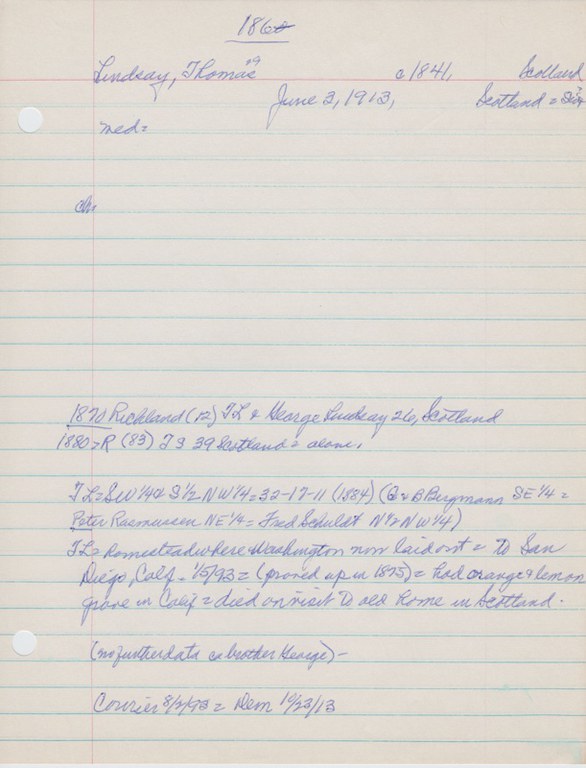 1860
Lindsay, Thomas "9 c1841, Scotland
June 3, 1913, Scotland =
med =
ch=
1870 Richland (12) TL & George Lindsay 26, Scotland
1880 = R (83) T S 39 Scotland = alone.
TL = SW 1/4 & S 1/2 NW 1/4 = 32-17-11 (1884) (& B Bergmann SE 1/4 =
Peter Rasmussen NE 1/4 = Fred Schuldt N 1/2 NW 1/4)
TL = homestead where Washington now laid out = to San
Diego, Calf - 1/5/93 = (proved up in 1875) = had orange & lemon
grove in Calif = died on visit to old home in Scotland.
(no further data on brother George) -
Courier 8/3/93 = Dem 10/23/13